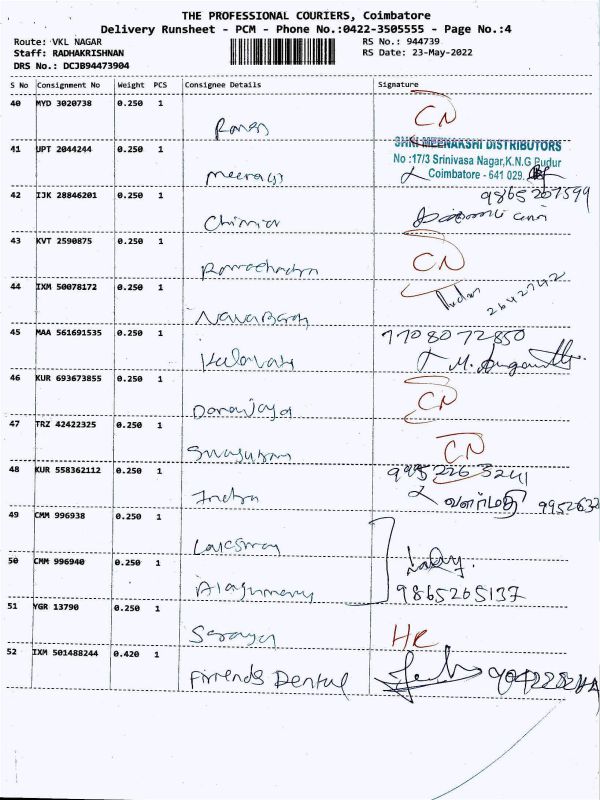 THE PROFESSIONAL COURIERS, Coimbatore
Delivery Runsheet - PCM - Phone No.:0422-3505555 - Page No.:4
Route: VKL NAGAR
RS No.: 944739
Staff: RADHAKRISHNAN
RS Date: 23-May-2022
DRS No.: DCJB94473904
S No Consignment No Weight PCS Consignee Details Signature
40 MYD 3020738 0.250 1 CN
SHRI MEENAKSHI DISTRIBUTORS
41 UPT 2044244 0.250 1 No :17/3 Srinivasa Nagar,K.N.G Pudur
Coimbatore - 641 029.
42 IJK 28846201 0.250 1 9865207599
43 KVT 2590875 0.250 1
Ramachndra CN
44 IXM 50078172 0.250 1 2642742
45 MAA 561691535 0.250 1 7708072850
Kalavati M.
46 KUR 693673855 0.250 1 CN
Danajaya
47 TRZ 42422325 0.250 1 CN
48 KUR 558362112 0.250 1 9952265241
Indra வளர்மதி 9952632
49 CMM 996938 0.250 1
50 CMM 996940 0.250 1
9865205137
51 YGR 13790 0.250 1
Saraya HR
52 IXM 501488244 0.420 1
Firrends Dental